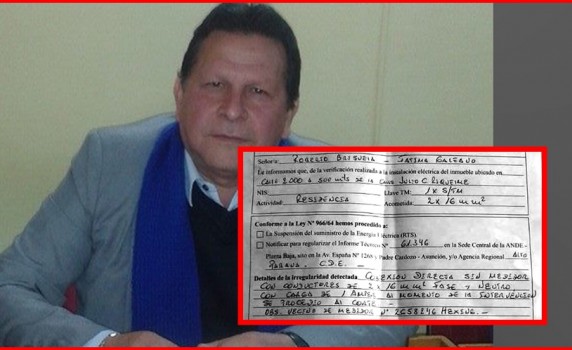 Señor/a: ROBERTO BRIGUELA - FATIMA GALEANO
Le informamos que, de la verificación realizada a la instalación eléctrica del inmueble ubicado en
CALLE 2000 A 500 mts DE LA CALLE JULIO C. RIQUELME
NIS Llave TM: 1X S/TM
Actividad RESIDENCIA Acometida: 2 x 16 mm²
Conforme a la Ley Nº 966/64 hemos procedido a:
La Suspensión del suministro de la Energía Eléctrica (RTS).
Notificar para regularizar el Informe Técnico Nº 61.396 en la Sede Central de la ANDE -
Planta Baja, sito en la Av. España Nº 1268 y Padre Cardozo - Asunción, y/o Agencia Regional ALTO
PARANA C.D.E. -
Detalles de la irregularidad detectada CONEXION DIRECTA SIN MEDIDOR
CON CONDUCTORES DE 2 x 16 mm² FASE Y NEUTRO
CON CARGA DE 1 AMPER AL MOMENTO DE LA INTERVENCION
SE PROCEDIO AL CORTE -
OBS. VECINO DE MEDIDOR Nº 2658246 HEXING. -